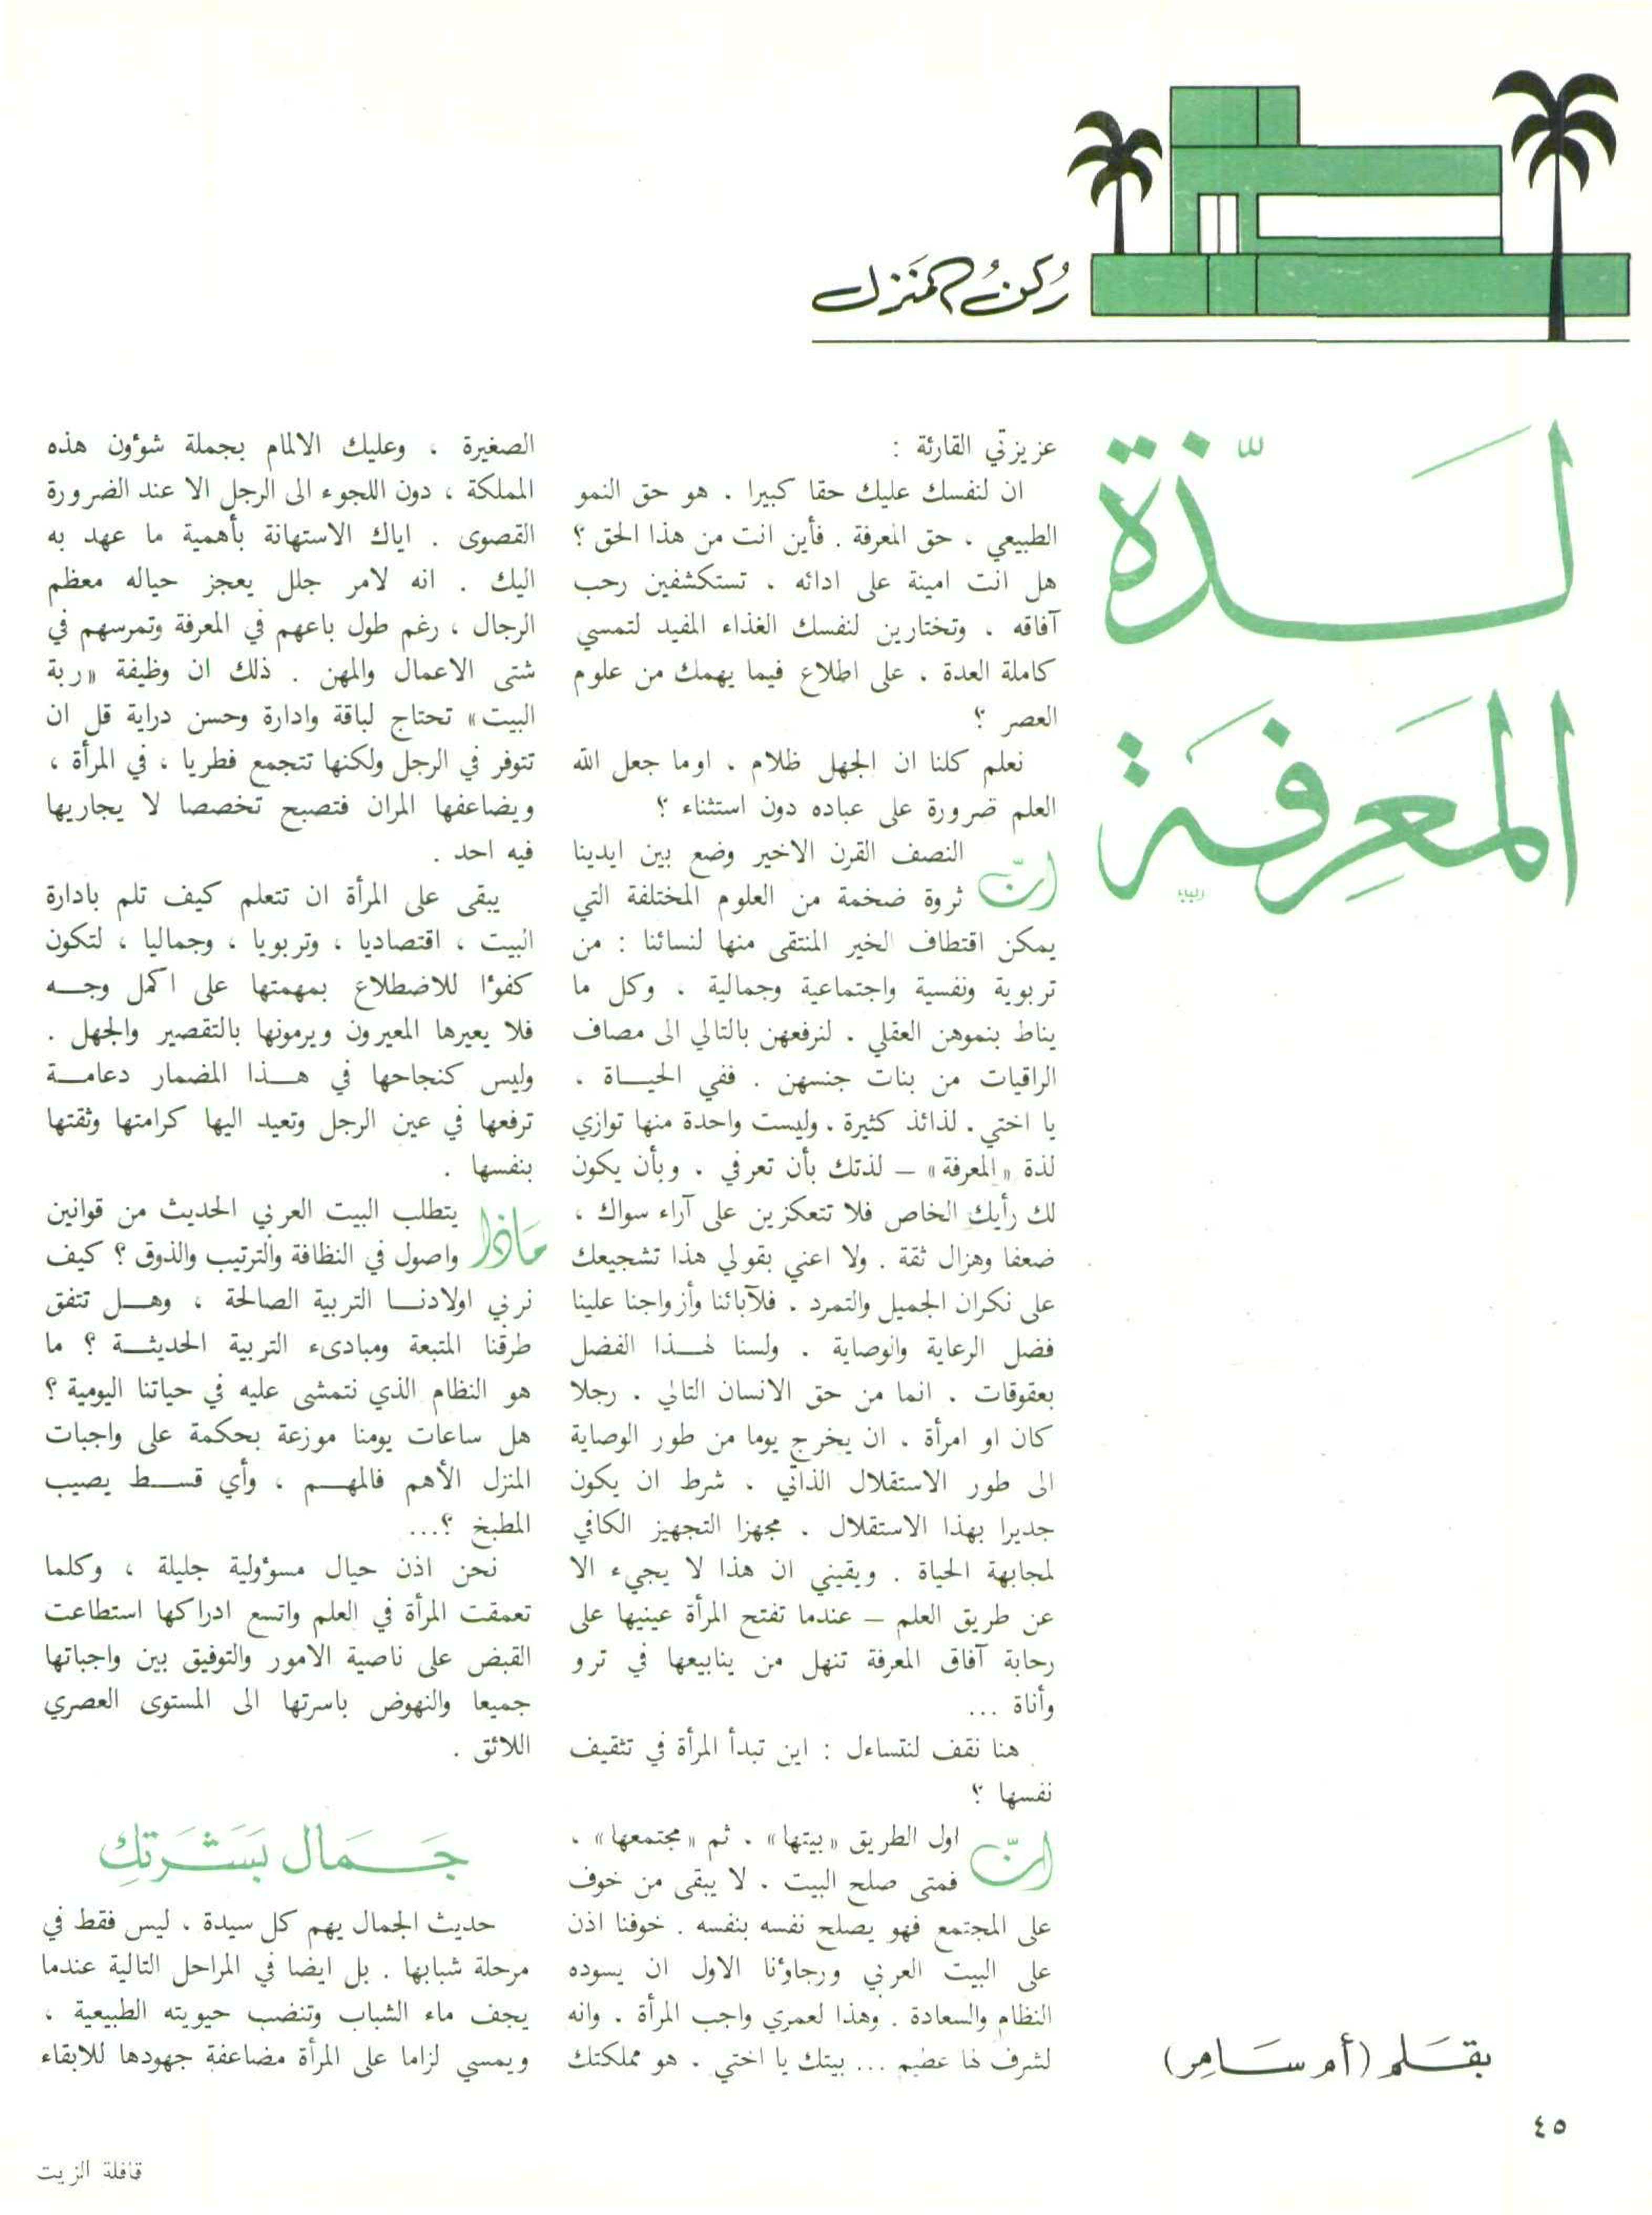 ركن المنزل
لذة
المعرفة
عزيزتي القارئة :
ان لنفسك عليك حقا كبيرا ، هو حق النمو
الطبيعي ، حق المعرفة . فأين انت من هذا الحق ؟
هل انت امينة على ادائه ، تستكشفين رحب
آفاقه ، وتختارين لنفسك الغذاء المفيد لتمسي
كاملة العدة ، على اطلاع فيما يهمك من علوم
العصر ؟
نعلم كلنا ان الجهل ظلام ، اوما جعل الله
العلم ضرورة على عباده دون استثناء ؟
انّ النصف القرن الاخير وضع بين ايدينا
ثروة ضخمة من العلوم المختلفة التي
يمكن اقتطاف الخير المنتقى منها لنسائنا : من
تربوية ونفسية واجتماعية وجمالية ، وكل ما
يناط بنموهن العقلي ، لنرفعهن بالتالي الى مصاف
الراقيات من بنات جنسهن . ففي الحيـاة ،
يا اختي ، لذائذ كثيرة ، وليست واحدة منها توازي
لذة «المعرفة» – لذتك بأن تعرفي ، وبأن يكون
لك رأيك الخاص فلا تتعكزين على آراء سواك ،
ضعفا وهزال ثقة . ولا اعني بقولي هذا تشجيعك
على نكران الجميل والتمرد ، فلآبائنا وأزواجنا علينا
فضل الرعاية والوصاية . ولسنا لهـذا الفضل
بعقوقات . انما من حق الانسان التالي ، رجلا
كان او امرأة ، ان يخرج يوما من طور الوصاية
الى طور الاستقلال الذاتي ، شرط ان يكون
جديرا بهذا الاستقلال ، مجهزا التجهيز الكافي
لمجابهة الحياة . ويقيني ان هذا لا يجيء الا
عن طريق العلم – عندما تفتح المرأة عينيها على
رحابة آفاق المعرفة تنهل من ينابيعها في ترو
وأناة ...
هنا نقف لنتساءل : اين تبدأ المرأة في تثقيف
نفسها ؟
انّ اول الطريق «بيتها» ، ثم «مجتمعها» ،
فمتى صلح البيت ، لا يبقى من خوف
على المجتمع فهو يصلح نفسه بنفسه . خوفنا اذن
على البيت العربي ورجاؤنا الاول ان يسوده
النظام والسعادة . وهذا لعمري واجب المرأة . وانه
لشرف لها عظيم ... بيتك يا اختي ، هو مملكتك
الصغيرة ، وعليك الالمام بجملة شؤون هذه
المملكة ، دون اللجوء الى الرجل الا عند الضرورة
القصوى . اياك الاستهانة بأهمية ما عهد به
اليك . انه لامر جلل يعجز حياله معظم
الرجال ، رغم طول باعهم في المعرفة وتمرسهم في
شتى الاعمال والمهن . ذلك ان وظيفة «ربة
البيت» تحتاج لباقة وادارة وحسن دراية قل ان
تتوفر في الرجل ولكنها تتجمع فطريا ، في المرأة ،
ويضاعفها المران فتصبح تخصصا لا يجاريها
فيه احد .
يبقى على المرأة ان تتعلم كيف تلم بادارة
البيت ، اقتصاديا ، وتربويا ، وجماليا ، لتكون
كفوءا للاضطلاع بمهمتها على اكمل وجـه
فلا يعيرها المعيرون ويرمونها بالتقصير والجهل .
وليس كنجاحها في هـذا المضمار دعامـة
ترفعها في عين الرجل وتعيد اليها كرامتها وثقتها
بنفسها .
ماذا يتطلب البيت العربي الحديث من قوانين
واصول في النظافة والترتيب والذوق ؟ كيف
نربي اولادنـا التربية الصالحة ، وهـل تتفق
طرقنا المتبعة ومبادىء التربية الحديثـة ؟ ما
هو النظام الذي نتمشى عليه في حياتنا اليومية ؟
هل ساعات يومنا موزعة بحكمة على واجبات
المنزل الأهم فالمهـم ، وأي قسـط يصيب
المطبخ ؟...
نحن اذن حيال مسؤولية جليلة ، وكلما
تعمقت المرأة في العلم واتسع ادراكها استطاعت
القبض على ناصية الامور والتوفيق بين واجباتها
جميعا والنهوض باسرتها الى المستوى العصري
اللائق .
جمال بشرتك
حديث الجمال يهم كل سيدة ، ليس فقط في
مرحلة شبابها . بل ايضا في المراحل التالية عندما
يجف ماء الشباب وتنضب حيويته الطبيعية ،
ويمسي لزاما على المرأة مضاعفة جهودها للابقاء
بقلم (أم سامر)
٤٥
قافلة الزيت